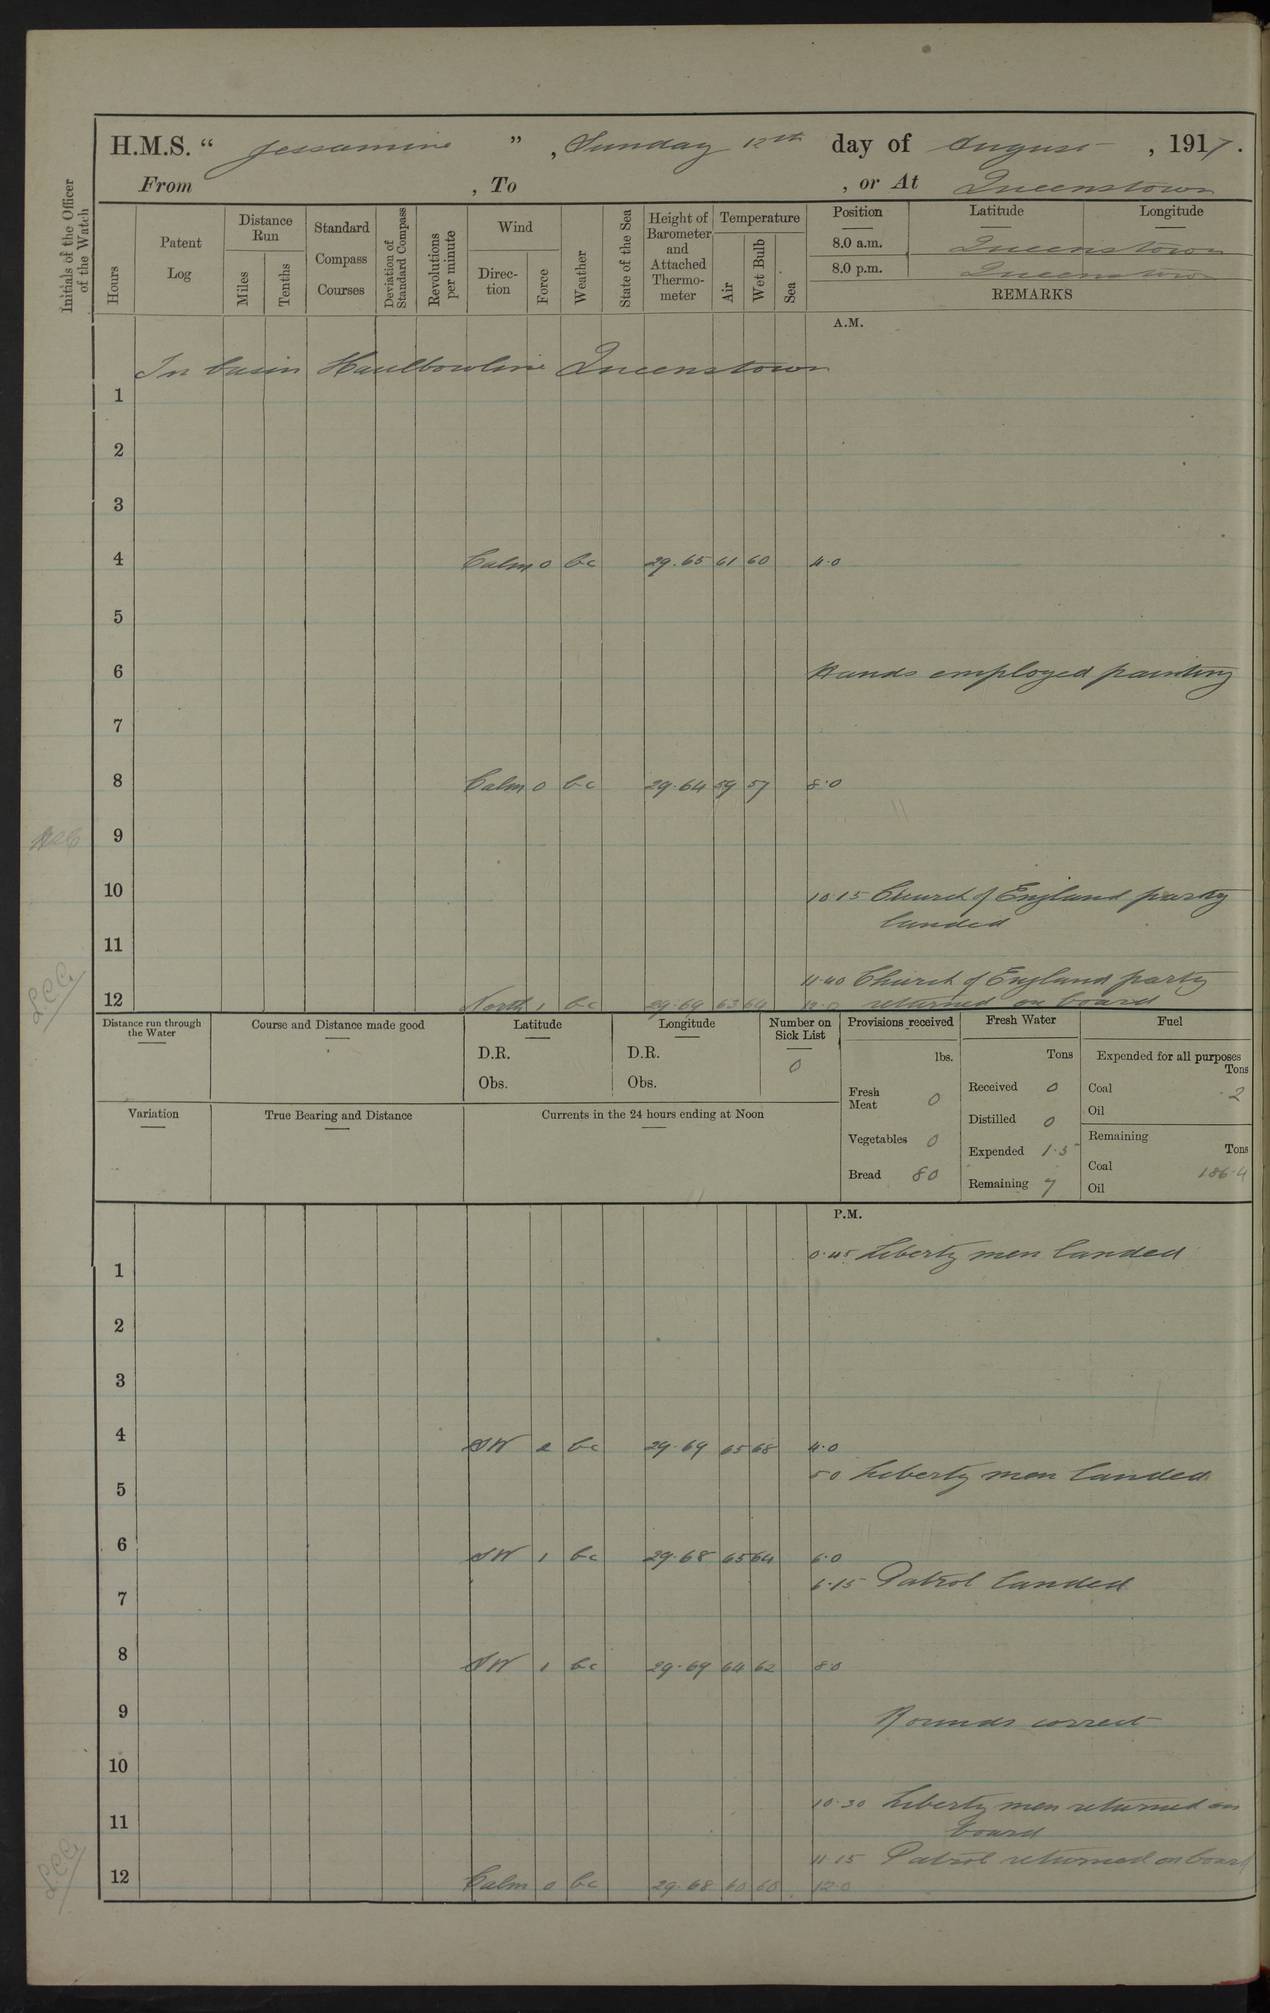 H.M.S. “ Jessamine ” , Sunday 12th day of August , 1917.
From , To , or At Queenstown
Initials of the Officer of the Watch
Hours
Patent Log
Distance Run
Miles
Tenths
Standard Compass Courses
Deviation of Standard Compass
Revolutions per minute
Wind
Direc-tion
Force
Weather
State of the Sea
Height of Barometer and Attached Thermo-meter
Temperature
Air
Wet Bulb
Sea
Position Latitude Longitude
8.0 a.m. Queenstown
8.0 p.m. Queenstown
REMARKS
A.M.
In basin Haulbowline Queenstown
1
2
3
4 Calm 0 bc 29.65 61 60 4.0
5
6 Hands employed painting
7
8 Calm 0 bc 29.64 59 57 8.0
9
10 10.15 Church of England party
landed
11
11.40 Church of England party
12 North 1 bc 29.69 63 64 12.0 returned on board
L.C.C.
Distance run through the Water
Course and Distance made good
Latitude
D.R.
Obs.
Longitude
D.R.
Obs.
Number on Sick List
0
Variation
True Bearing and Distance
Currents in the 24 hours ending at Noon
Provisions received
lbs.
Fresh Meat 0
Vegetables 0
Bread 80
Fresh Water
Tons
Received 0
Distilled 0
Expended 1.5
Remaining 7
Fuel
Expended for all purposes
Tons
Coal 2
Oil
Remaining
Tons
Coal 186.4
Oil
P.M.
0.45 Liberty men landed
1
2
3
4 SW 2 bc 29.69 65 68 4.0
5.0 Liberty men landed
5
6 SW 1 bc 29.68 65 64 6.0
6.15 Patrol landed
7
8 SW 1 bc 29.69 64 62 8.0
9 Rounds correct
10
10.30 Liberty men returned on
11 board
11.15 Patrol returned on board
12 Calm 0 bc 29.68 60 60 12.0
L.C.C.